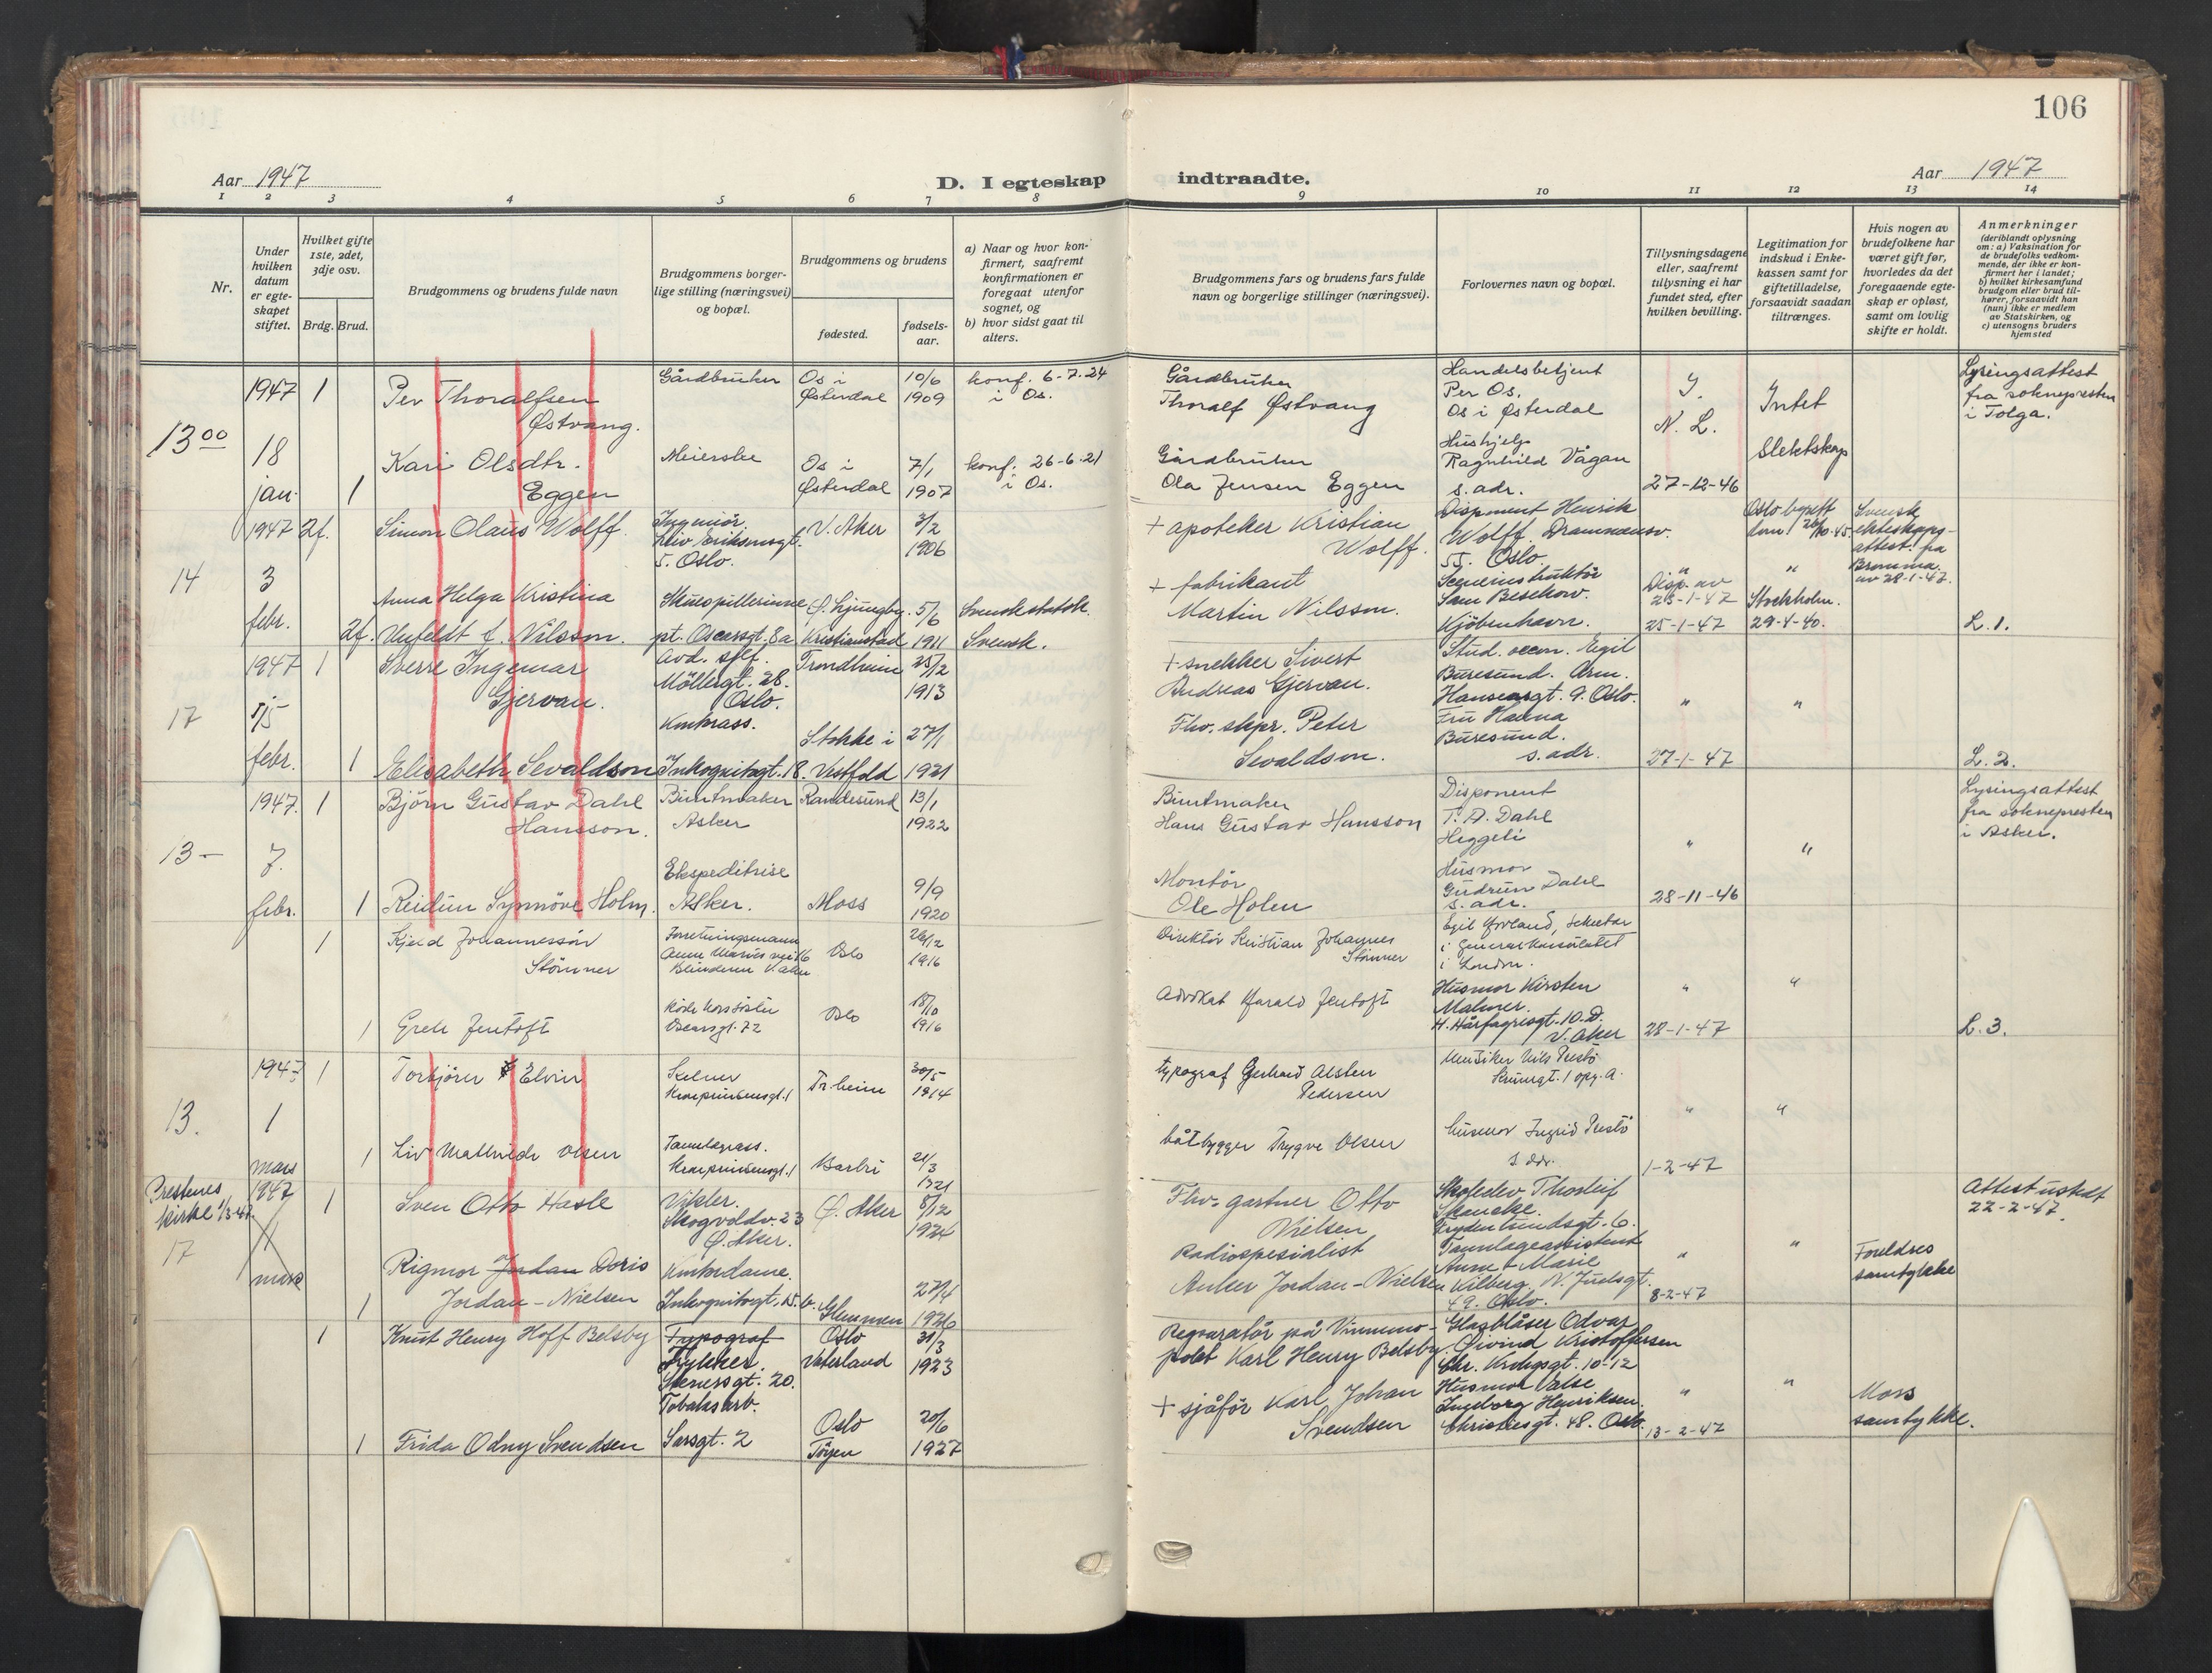 106
Aar 1947
D. I egteskap indtraadte.
Aar 1947
1 2 3 4 5 6 7 8 9 10 11 12 13 14
Nr.
Under hvilken datum er egteskapet stiftet.
Hvilket gifte 1ste, 2det, 3dje osv.
Brdg. Brud.
Brudgommens og brudens fulde navn
Brudgommens borgerlige stilling (næringsvei) og bopæl.
Brudgommens og brudens
fødested.
fødselsaar.
a) Naar og hvor konfirmert, saafremt konfirmationen er foregaat utenfor sognet, og
b) hvor sidst gaat til alters.
Brudgommens fars og brudens fars fulde navn og borgerlige stillinger (næringsvei).
Forlovernes navn og bopæl.
Tillysningsdagene eller, saafremt tillysning ei har fundet sted, efter hvilken bevilling.
Legitimation for indskud i Enkekassen samt for giftetilladelse, forsaavidt saadan tiltrænges.
Hvis nogen av brudefolkene har været gift før, hvorledes da det foregaaende egteskap er opløst, samt om lovlig skifte er holdt.
Anmerkninger
(deriblandt oplysning om: a) Vaksination for de brudefolks vedkommende, der ikke er konfirmert her i landet; b) hvilket kirkesamfund brudgom eller brud tilhører, forsaavidt han (hun) ikke er medlem av Statskirken, og c) utensogns bruders hjemsted
13 00
1947 18 jan.
1
Per Thoralfsen Østvang.
Gårdbruker
Os i Østerdal
10/6 1909
konf. 6-7-24 i Os.
Gårdbruker Thoralf Østvang
Handelsbetjent Per Os.
Os i Østerdal
N. L.
Intet
Slektskap
Lysingsattest fra soknepresten i Tolga.
1
Kari Olsdtr. Eggen
Meierske
Os i Østerdal
7/1 1907
konf. 26-6-21 i Os.
Gårdbruker Ola Jensen Eggen
Hushjelp Ragnhild Vågan
s. adr.
27-12-46
14
1947 3 febr.
2f.
Simon Olaus Wolff.
Ingeniør.
Leiv Eriksonsgt. 5. Oslo.
V. Aker
3/2 1906
+ apoteker Kristian Wolff.
Disponent Henrik Wolff. Drammensv. 55. Oslo.
Oslo byrett
Svensk ekteskapsattest. fra Bromma. av 28-1-47.
2f.
Anna Helga Kristina Nilsson.
Skuespillerinne
pt. Oscarsgt. 8a
Ø. Ljungby. Kristianstad
5/6 1911
Svensk statsk.
Svensk.
+ fabrikant Martin Nilsson.
Sceneinstruktör Sam Besekow. Kjöbenhavn.
Disp. av 23-1-47
25-1-47
Stockholm. 29-4-40.
L. 1.
17
1947 15 febr.
1
Sverre Ingemar Gjervan.
Avd. sjef.
Möllergt. 28. Oslo.
Trondheim
25/12 1913
+ snekker Sivert Andreas Gjervan.
Stud. oecon. Egil Buresund. Arn. Hansensgt. 9. Oslo.
1
Elisabeth Sevaldson
Kontorass.
Inkognitogt. 18.
Stokke i Vestfold
27/1 1921
Fhv. skpr. Peter Sevaldson.
Fru Hanna Buresund.
s. adr.
27-1-47
L. 2.
13-
1947. 7. febr.
1
Björn Gustav Dahl Hansson.
Buntmaker
Asker
Randesund
13/1 1922
Buntmaker Hans Gustav Hansson
Disponent T. A. Dahl
Heggeli
Lysingsattest fra soknepresten i Asker.
1
Reidun Synnöve Holm.
Ekspeditrise
Asker.
Moss
9/9 1920
Montör Ole Holm
Husmor Gudrun Dahl
s. adr.
28-11-46
1
Kjeld Johannessön Störmer
Forretningsmann
Blindern V. Aker
Oslo
26/12 1916
Direktör Kristian Johannes Störmer
i Generalkonsulatet i London.
1
Grete Jentoft
Röde Korssöster
Oscarsgt. 72
Oslo
18/10 1916
Advokat Harald Jentoft
Husmor Kirsten Malmer.
H. Hårfagresgt. 10. D. V. Aker
28-1-47
L. 3.
13.
1947 1 mars
1
Torbjörn Elvin
Kelner
Kronprinsensgt. 1
Tr.heim
30/5 1914
typograf Gerhard Alsten Pedersen
Musiker Nils Prestö
1
Liv Mathilde Olsen
Tannlegeass.
Kronprinsensgt. 1
Barbu
21/3 1921
båtbygger Trygve Olsen
husmor Ingrid Prestö
s. adr.
1-2-47
Prestenes kirke 1/3-47.
17
1947 1 mars
1
Sven Otto Hasle
Vikler.
Skogvoldv. 23 Ø. Aker.
Ø. Aker
8/12 1924
Fhv. gartner Otto Nielsen
Thorleif
Frydenlundsgt. 6.
Attest utstedt 22-2-47.
1
Rigmor Jordan Doris Jordan-Nielsen
Kontordame.
Inkognitogt. 15. b.
Glemmen
27/4 1926
Radiospesialist Anker Jordan-Nielsen
Tannlegeassistent Anne Marie Kilberg. N. Juelsgt. 49. Oslo.
8-2-47
Foreldres samtykke
1
Knut Henry Hoff Belsby
Typograf
Trykker.
Stenersgt. 20.
Oslo Vaterland
31/3 1923
Reparatör på Vinmonopolet Karl Henry Belsby.
Glassblåser Odvar Øivind Kristoffersen
Chr. Krohgsgt. 10-12
1
Frida Odny Svendsen
Tobaksarb.
Sarsgt. 2
Oslo Töyen
20/6 1927
+ sjåför Karl Johan Svendsen
Husmor Valse Ingeborg Henriksen.
Christiesgt. 48. Oslo.
13-2-47
Mors samtykke.